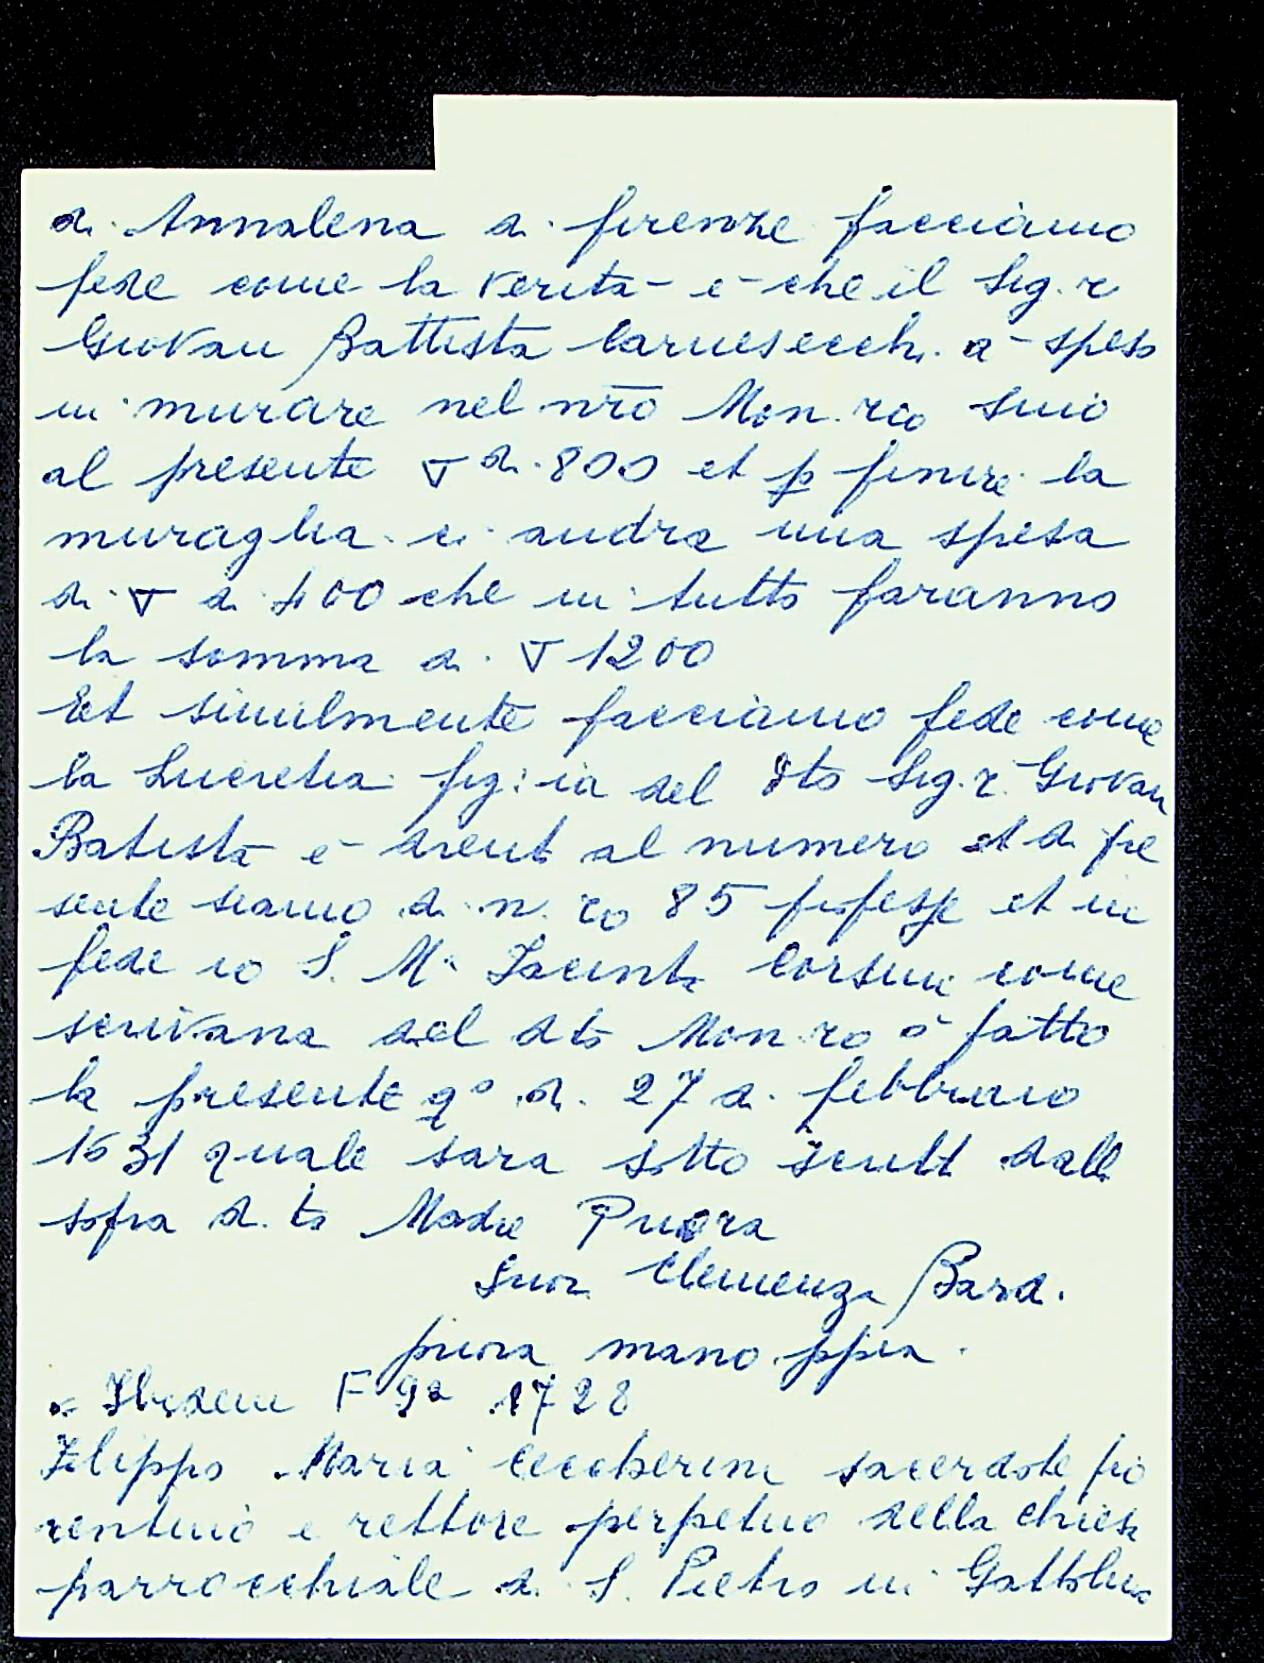 di Annalena di firenze facciamo
fede come la verita e che il Sig.r
Giovan Battista Carnesecchi a speso
in murare nel nro Mon.rio sino
al presente ∇ di 800 et p finire la
muraglia ci andra una spesa
di ∇ di 400 che in tutto faranno
la somma di ∇ 1200
Et similmente facciamo fede come
la Lucretia fig:ia del dto Sig.r Giovan
Batista e drent al numero et di pre
sente siamo di n.ro 85 professe et in
fede io S. Mª Iacinta Corsini come
scrivana del dto Mon.ro o fatto
la presente qº di 27 di febbraio
1631 quale sara sotto scritt dalla
sopra d.ta Madre Priora
Suor Clemenza Bardi
priora mano ppria
Ibidem F 92 1728
Filippo Maria Ceccherini sacerdote fio
rentino e rettore perpetuo della chiesa
parrocchiale di S. Pietro in Gattolino